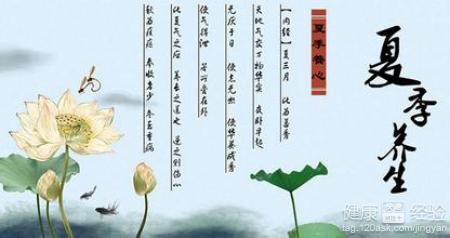 夏季养生
夏季养心
【内经】夏三月 此为蕃秀
天地气交万物华实 夜卧早起
无厌于日 使志无怒 使华英成秀
使气得泄 若所爱在外
此夏气之应 养长之道也 逆之则伤心
秋为痎疟 奉收者少 冬至重病
健康 经验
tag.120ask.com/jingyan